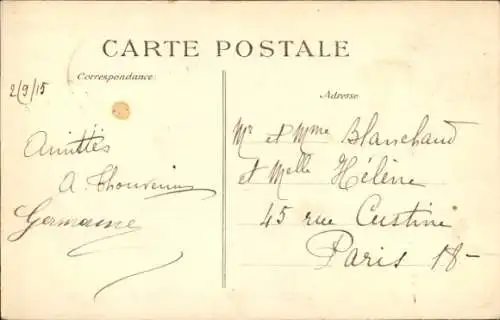 CARTE POSTALE
Correspondance
Adresse
2/9/15
Amitiés
A. Thouvenin
Germaine
Mr et Mme Blanchaud
et Melle Hélène
45 rue Custine
Paris 18-